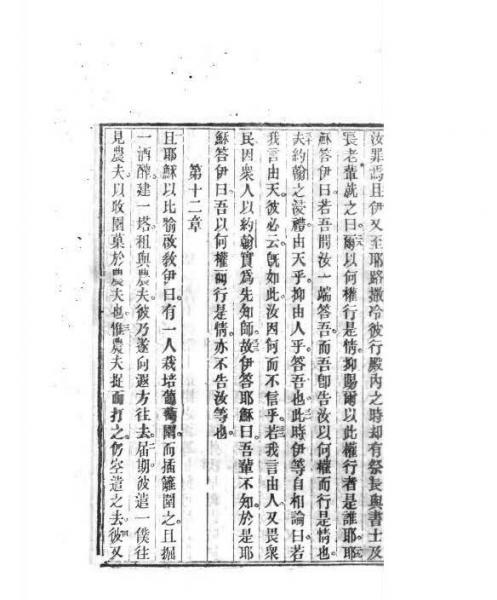 汝罪焉且伊又至耶路撒冷彼行殿內之時却有祭長與書士及
長老輩就之曰爾以何權行是情抑賜爾以此權行者是誰耶耶
穌答伊曰若吾問汝一端答吾而吾卽告汝以何權而行是情也
夫約翰之浸禮由天乎抑由人乎答吾也此時伊等自相論曰若
我言由天彼必云旣如此汝因何而不信乎若我言由人又畏衆
民因衆人以約翰實爲先知師故伊答耶穌曰吾輩不知於是耶
穌答伊曰吾以何權而行是情亦不告汝等也
第十二章
且耶穌以比喻啟敎伊曰有一人栽培葡萄園而插籬圍之且掘
一酒醡建一塔租與農夫彼乃遂向遐方往去屆期彼遣一僕往
見農夫以收園菓於農夫也惟農夫捉而打之仍空遣之去彼又